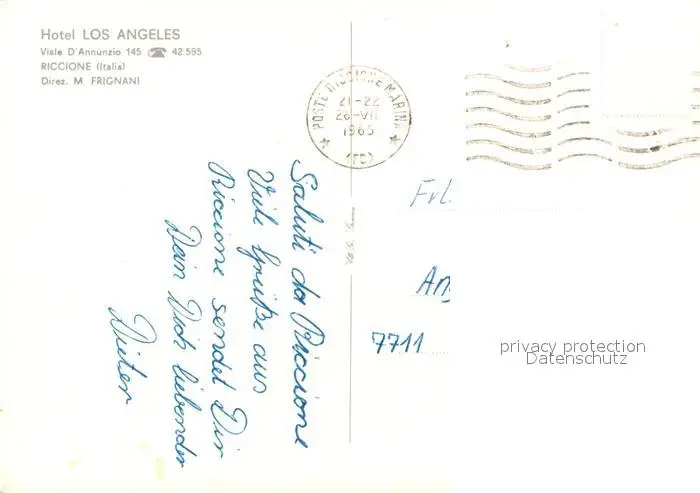 Hotel LOS ANGELES
Viale D'Annunzio 145 ☎ 42.595
RICCIONE (Italia)
Direz. M. FRIGNANI
POSTE RICCIONE MARINA
21-22
26-VII
1965
(FO)
Saluti da Riccione
Viele Grüße aus
Riccione sendet Dir
Dein Dich liebender
Dieter
Frl.
7711
privacy protection
Datenschutz